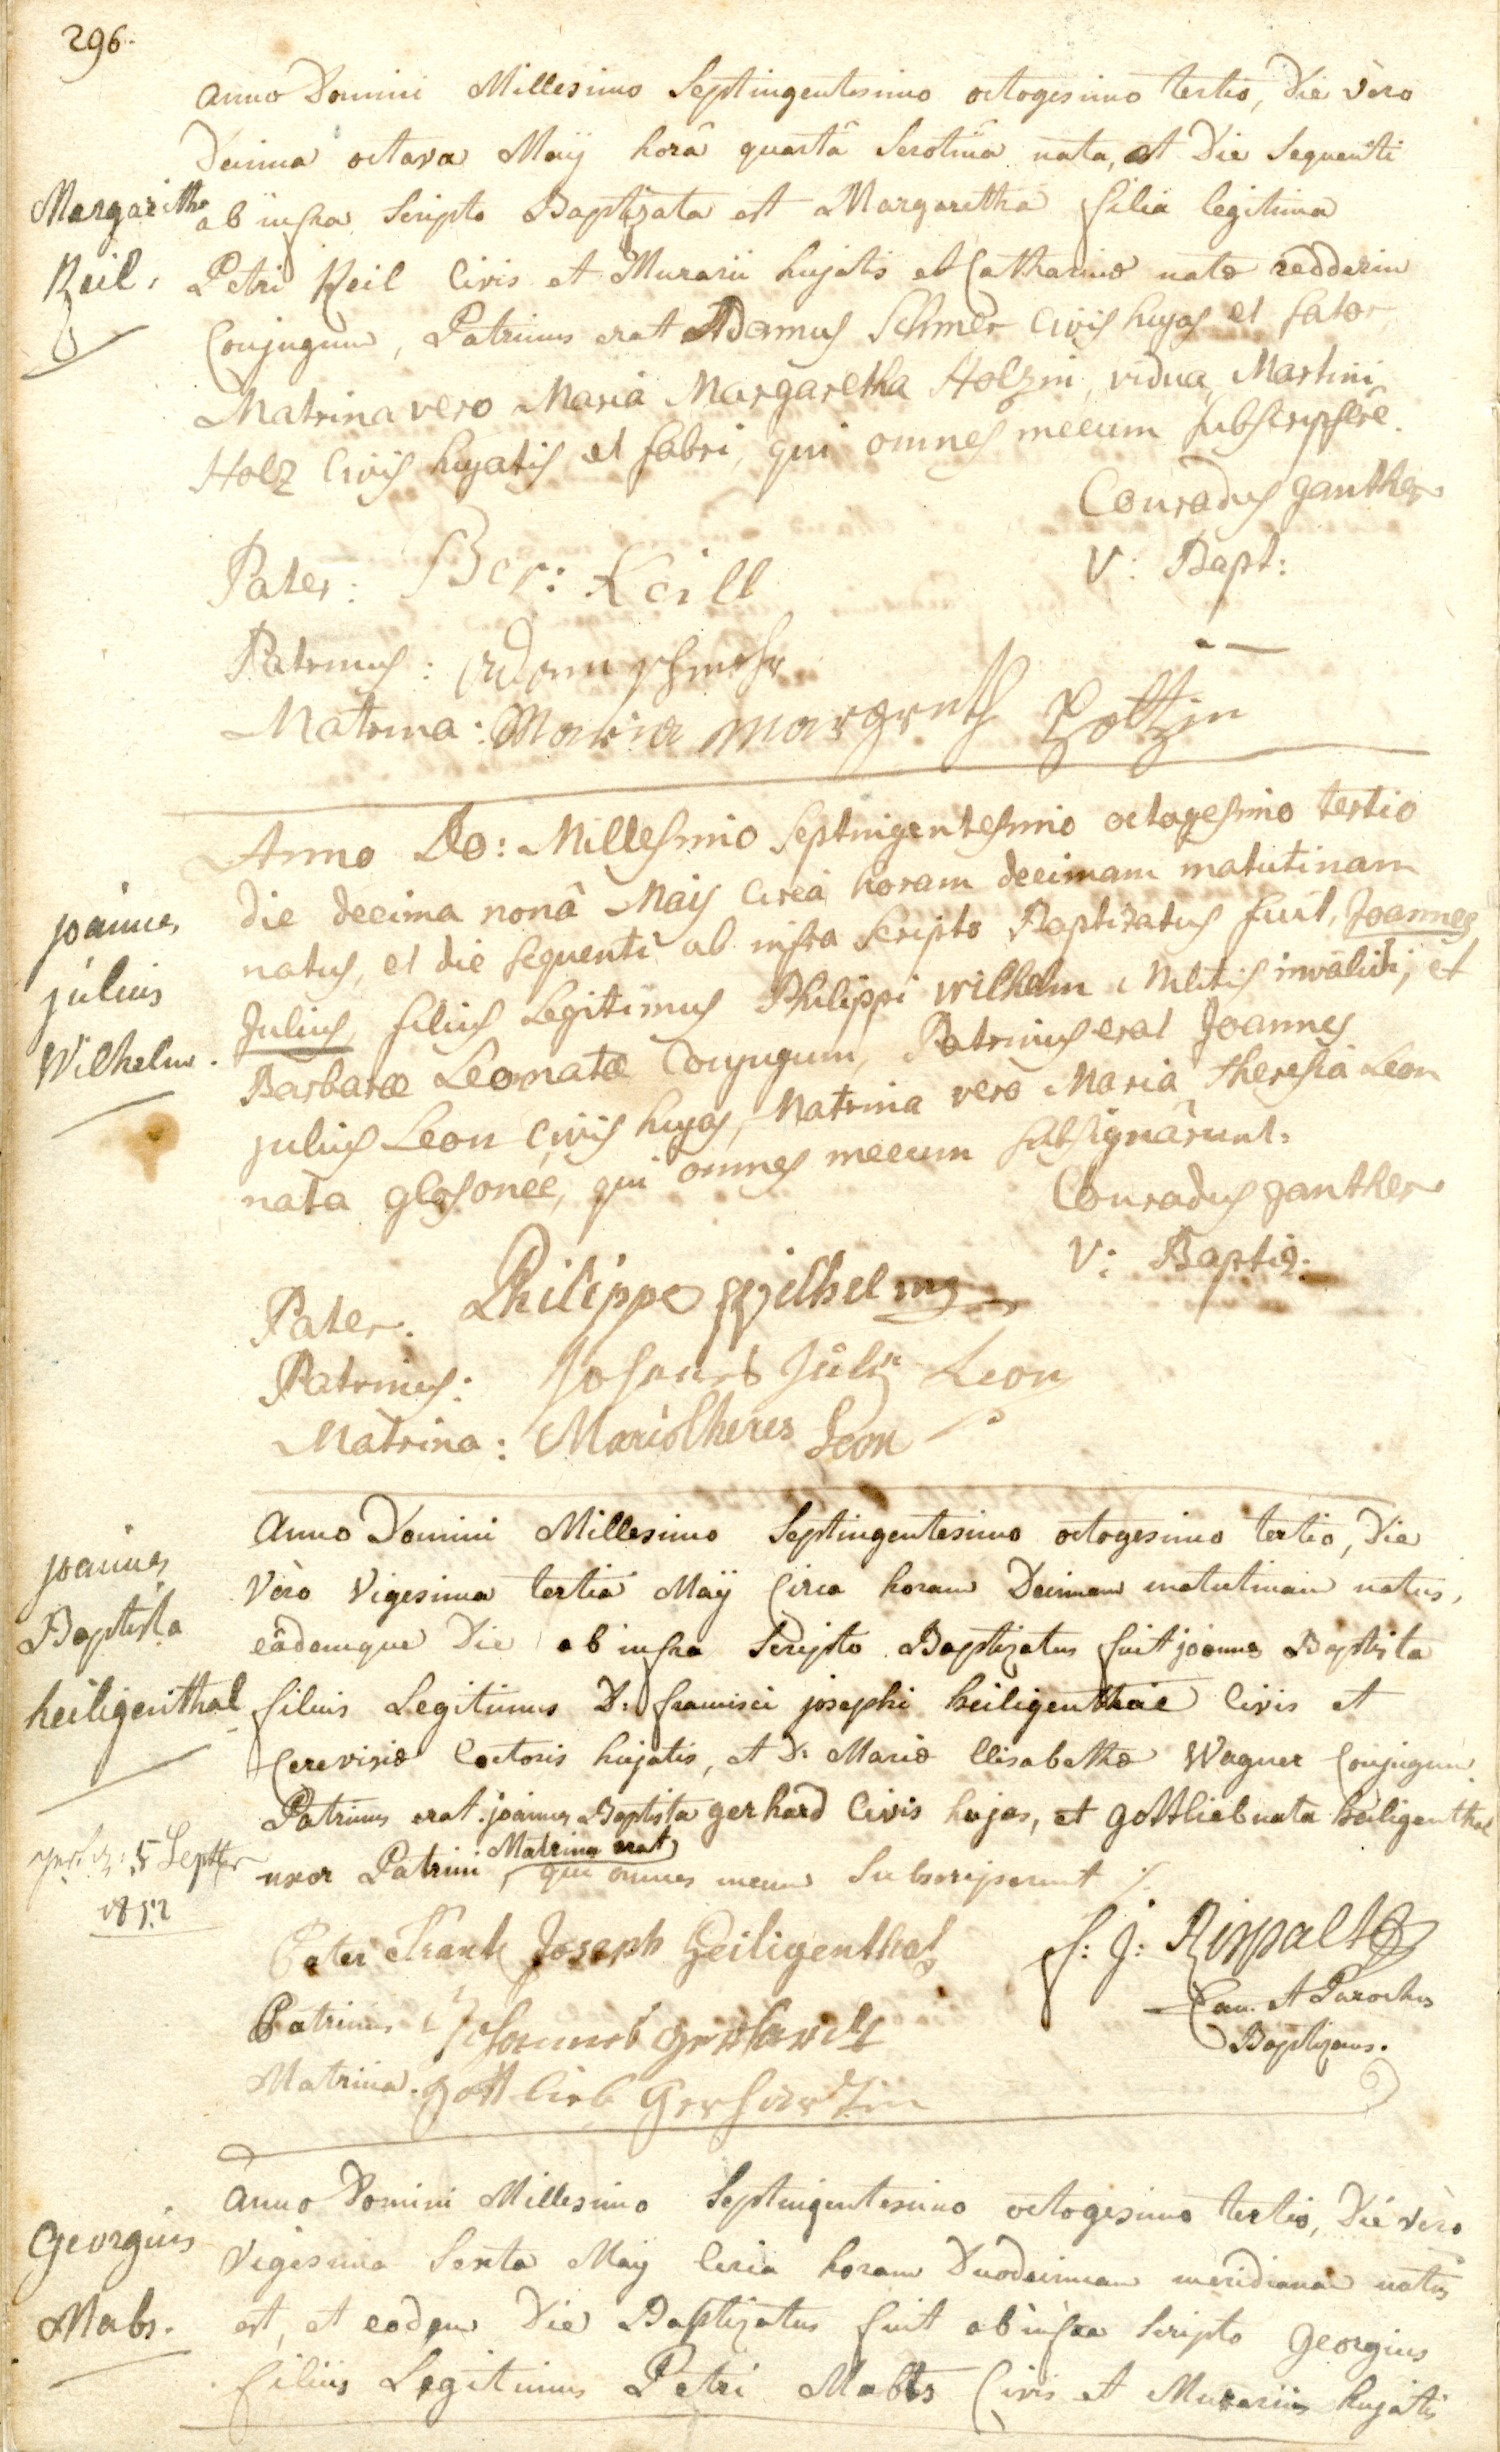 296.
Anno Domini Millesimo Septingentesimo octogesimo tertio, Die vero
Decima octava Maÿ horâ quartâ Serotinâ nata, et Die Sequenti
Margaritha
ab infra Scripto Baptizata est Margaretha filia legitima
Keil.
Petri Keil Civis et Murarii hujatis et Catharinæ natæ redderin
Conjugum, Patrinus erat Adamus Schmer Civis hujas et sator
Matrina vero Maria Margaretha Holzin, vidua Martini
Holz Civis hujatis et fabri, qui omnes mecum subscripsêre.
Conradus ganther
V: Bapt:
Pater: Ber: Keill
Patrinus: Adam schmehr
Matrina: Maria margreth Holtzin
Anno Do: Millesimo Septingentesimo octogesimo tertio
die decima nonâ Maÿ circa horam decimam matutinam
joannes
julius
Wilhelm.
natus, et die sequenti ab infra Scripto Baptizatus fuit, Joannes
Julius filius Legitimus Philippi Wilhelm Militis invalidi, et
Barbaræ Leonatæ Conjugum, Patrinus erat Joannes
julius Leon Civis hujas, Matrina vero Maria Theresia Leon
nata glosonée, qui omnes mecum subsignârunt.
Conradus ganther
V: Baptiz:
Pater. Philippe Wilhelm
Patrinus: Johanes Juli Leon
Matrina: Maria Theres Leon
Anno Domini Millesimo Septingentesimo octogesimo tertio, Die
joannes
Baptista
heiligenthal
Vero Vigesima tertia Maÿ Circa horam Decimam matutinam natus,
eâdemque Die ab infra Scripto Baptizatus fuit joannes Baptista
filius Legitimus D: francisci josephi heiligenthal Civis et
Cerevisiæ Coctoris hujatis, et D: Mariæ Elisabethæ Wagner Conjugum.
Patrinus erat joannes Baptista gerhard Civis hujas, et gottlieb nata heiligenthal
uxor Patrini Matrina erat, qui omnes mecum Subscripserunt
5 Septber
1852
Pater Frantz Joseph Heiligenthal
f: j: Rippalt
Can. et Parochus
Baptizans.
Patrinus Johannes gerhardt
Matrina. gottlieb gerhardtin
Anno Domini Millesimo Septingentesimo octogesimo tertio, Die vero
Georgius
Mabs.
Vigesima Sexta Maÿ Circa horam Duodecimam meridianam natus
est, et eodem Die Baptizatus fuit ab infra Scripto Georgius
filius Legitimus Petri Mabts Civis et Murarii hujatis